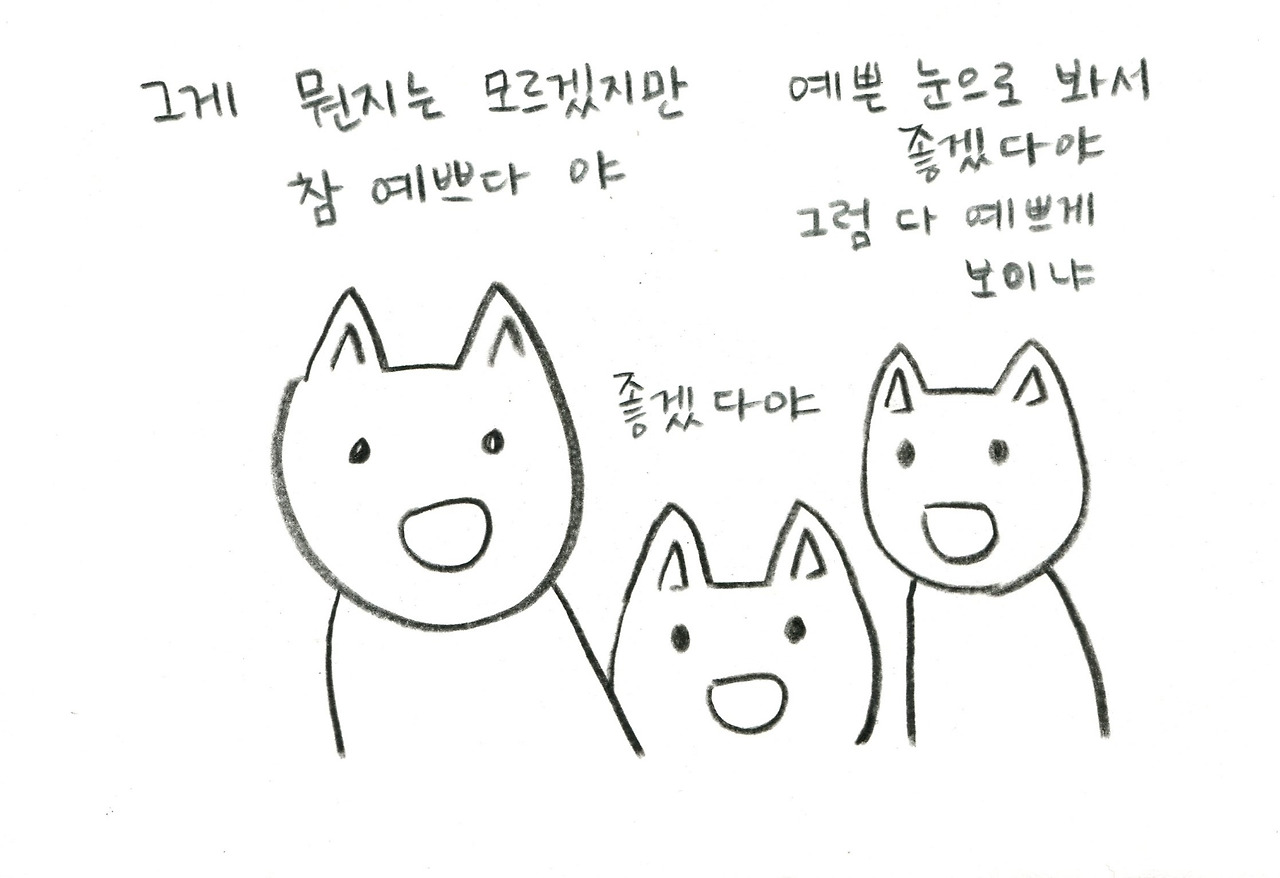 그게 뭔지는 모르겠지만
참 예쁘다 야
예쁜 눈으로 봐서
좋겠다야
그럼 다 예쁘게
보이냐
좋겠다야